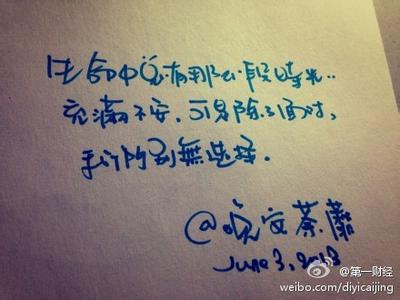 生命中总有那么一段时光..
充满不安，可是除了面对，
我们别無选择.
@晚安荼蘼
June 3, 2013
@第一财经
weibo.com/diyicaijing